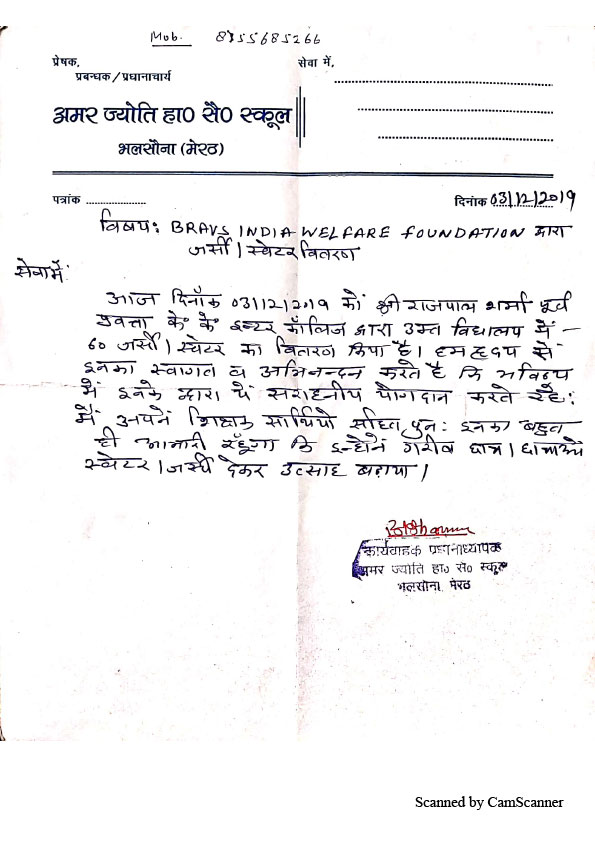 Mob. 8755685266
प्रेषक,
प्रबन्धक / प्रधानाचार्य
सेवा में,
अमर ज्योति हा० सै० स्कूल
भलसौना (मेरठ)
पत्रांक
दिनांक 03/12/2019
विषय: BRAVS INDIA WELFARE FOUNDATION द्वारा
जर्सी / स्वेटर वितरण
सेवामें
आज दिनाँक 03/12/2019 को श्री राजपाल शर्मा पूर्व
प्रवक्ता के० के० इन्टर कॉलिज द्वारा उक्त विद्यालय में -
60 जर्सी / स्वेटर का वितरण किया है। हम हृदय से
इनका स्वागत व अभिनन्दन करते है कि भविष्य
में इनके द्वारा ये सराहनीय योगदान करते रहे:
मैं अपनें शिक्षक साथियो सहित पुन: इनका बहुत
ही आभारी रहूँगा कि इन्होनें गरीब छात्र / छात्राओं
स्वेटर / जर्सी देकर उत्साह बढ़ाया।
कार्यवाहक प्रधानाध्यापक
अमर ज्योति हा० सै० स्कूल
भलसौना मेरठ
Scanned by CamScanner